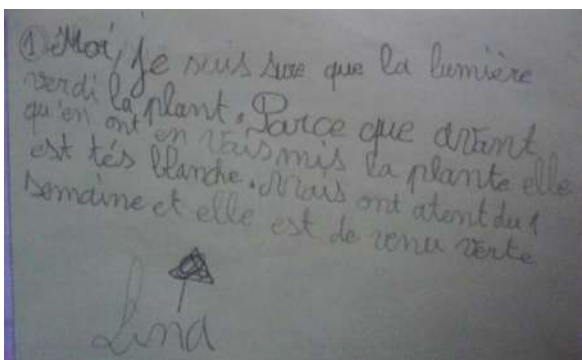 ① Moi, je suis sure que la lumière
verdi la plant. Parce que avant
qu'en ont en vais mis la plante elle
est tés blanche. Mais ont atent du 1
semaine et elle est de venu verte
Lina